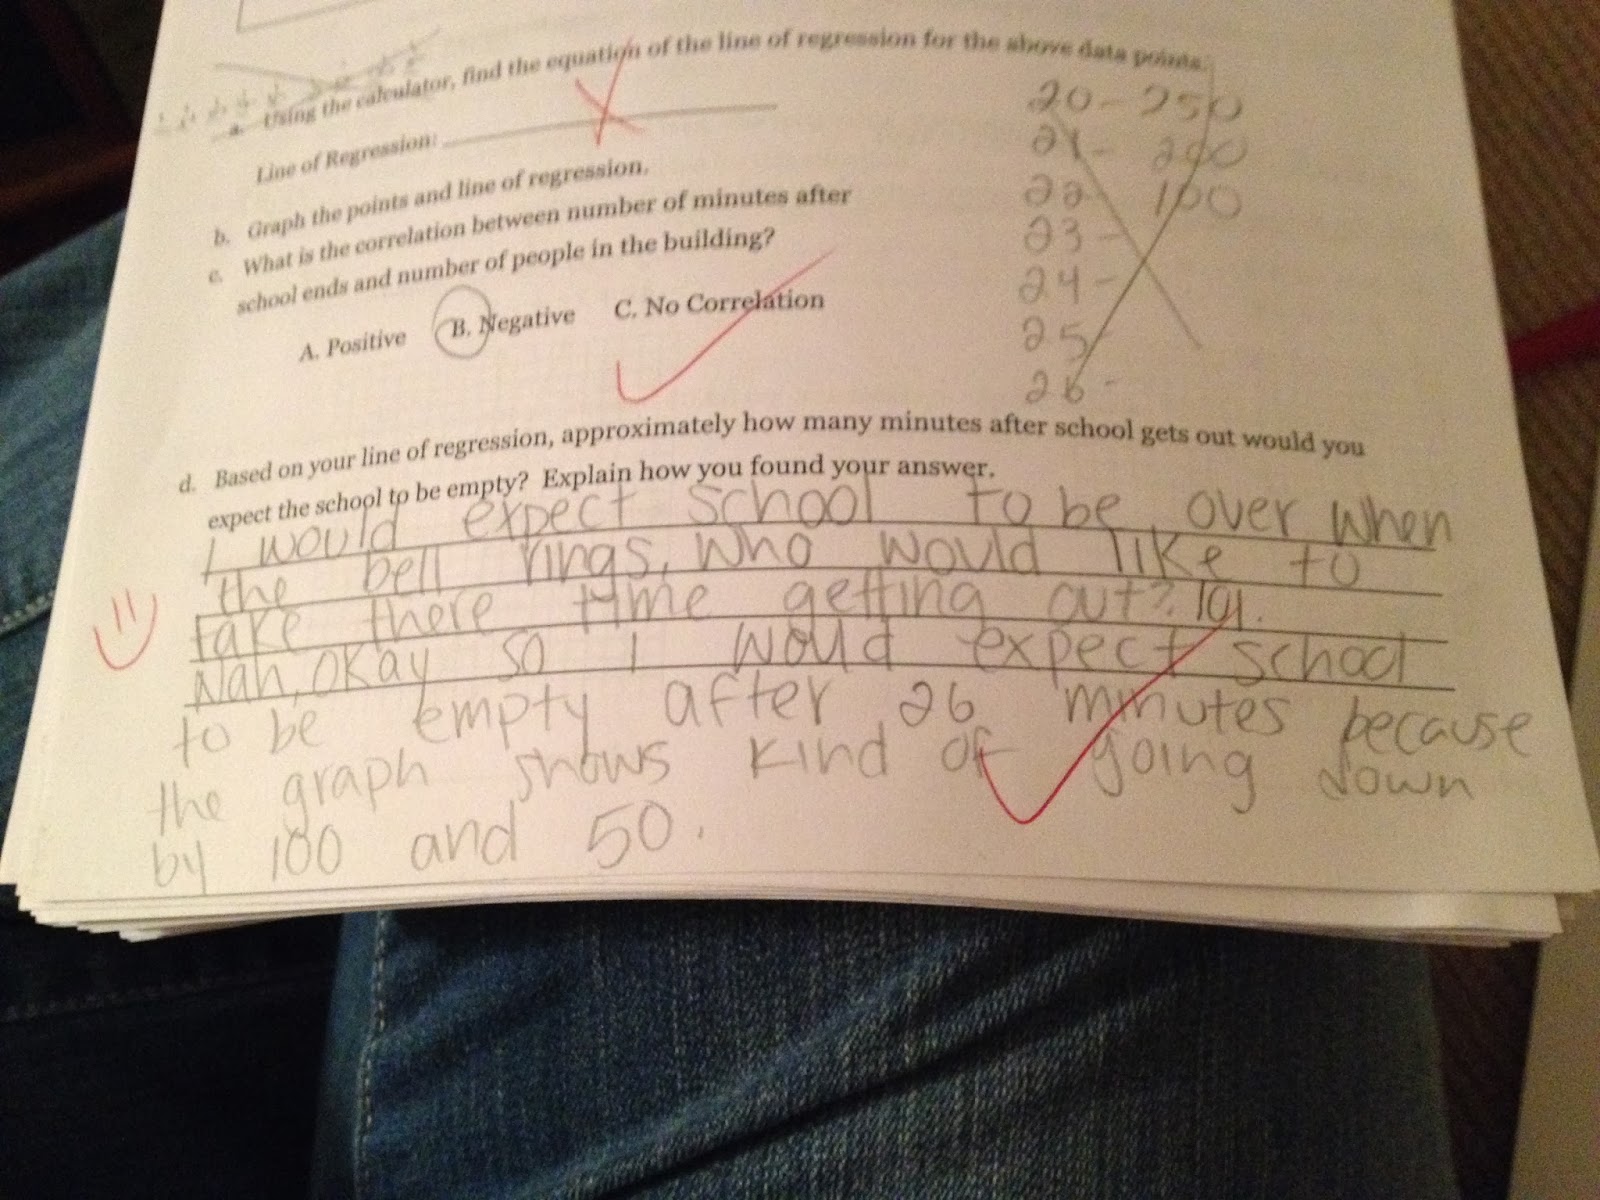 a. Using the calculator, find the equation of the line of regression for the above data points.
Line of Regression:
b. Graph the points and line of regression.
c. What is the correlation between number of minutes after
school ends and number of people in the building?
A. Positive B. Negative C. No Correlation
20 - 250
21 - 200
22 100
23 -
24 -
25
26 -
d. Based on your line of regression, approximately how many minutes after school gets out would you
expect the school to be empty? Explain how you found your answer.
I would expect school to be over when
the bell rings, who would like to
take there time getting out? lol.
Nah, okay so I would expect school
to be empty after 26 minutes because
the graph shows kind of going down
by 100 and 50.